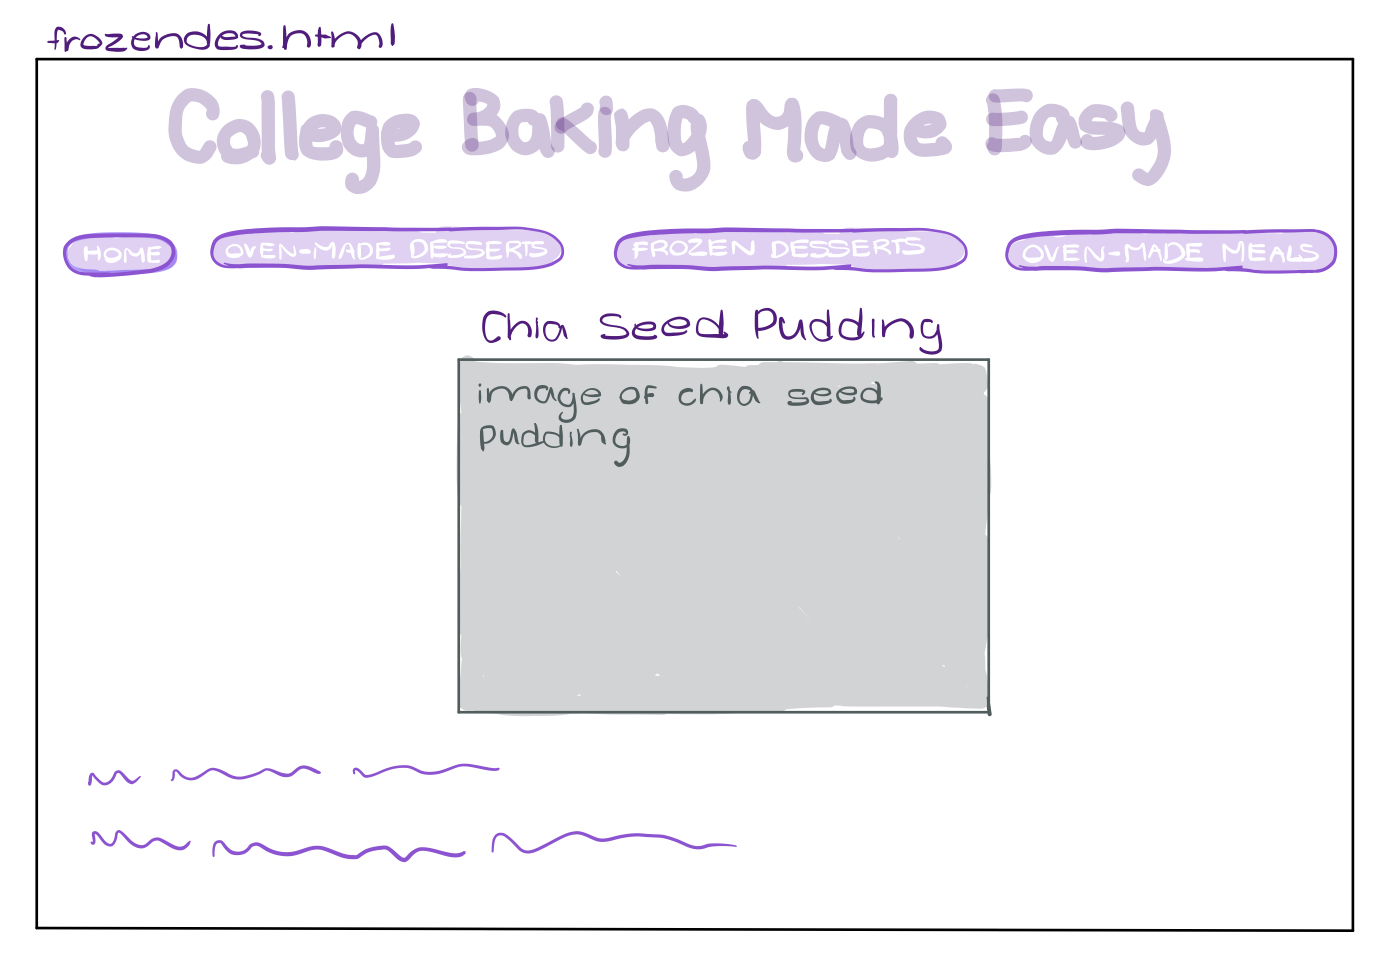 frozendes.html
College Baking Made Easy
HOME
OVEN-MADE DESSERTS
FROZEN DESSERTS
OVEN-MADE MEALS
Chia Seed Pudding
image of chia seed
pudding